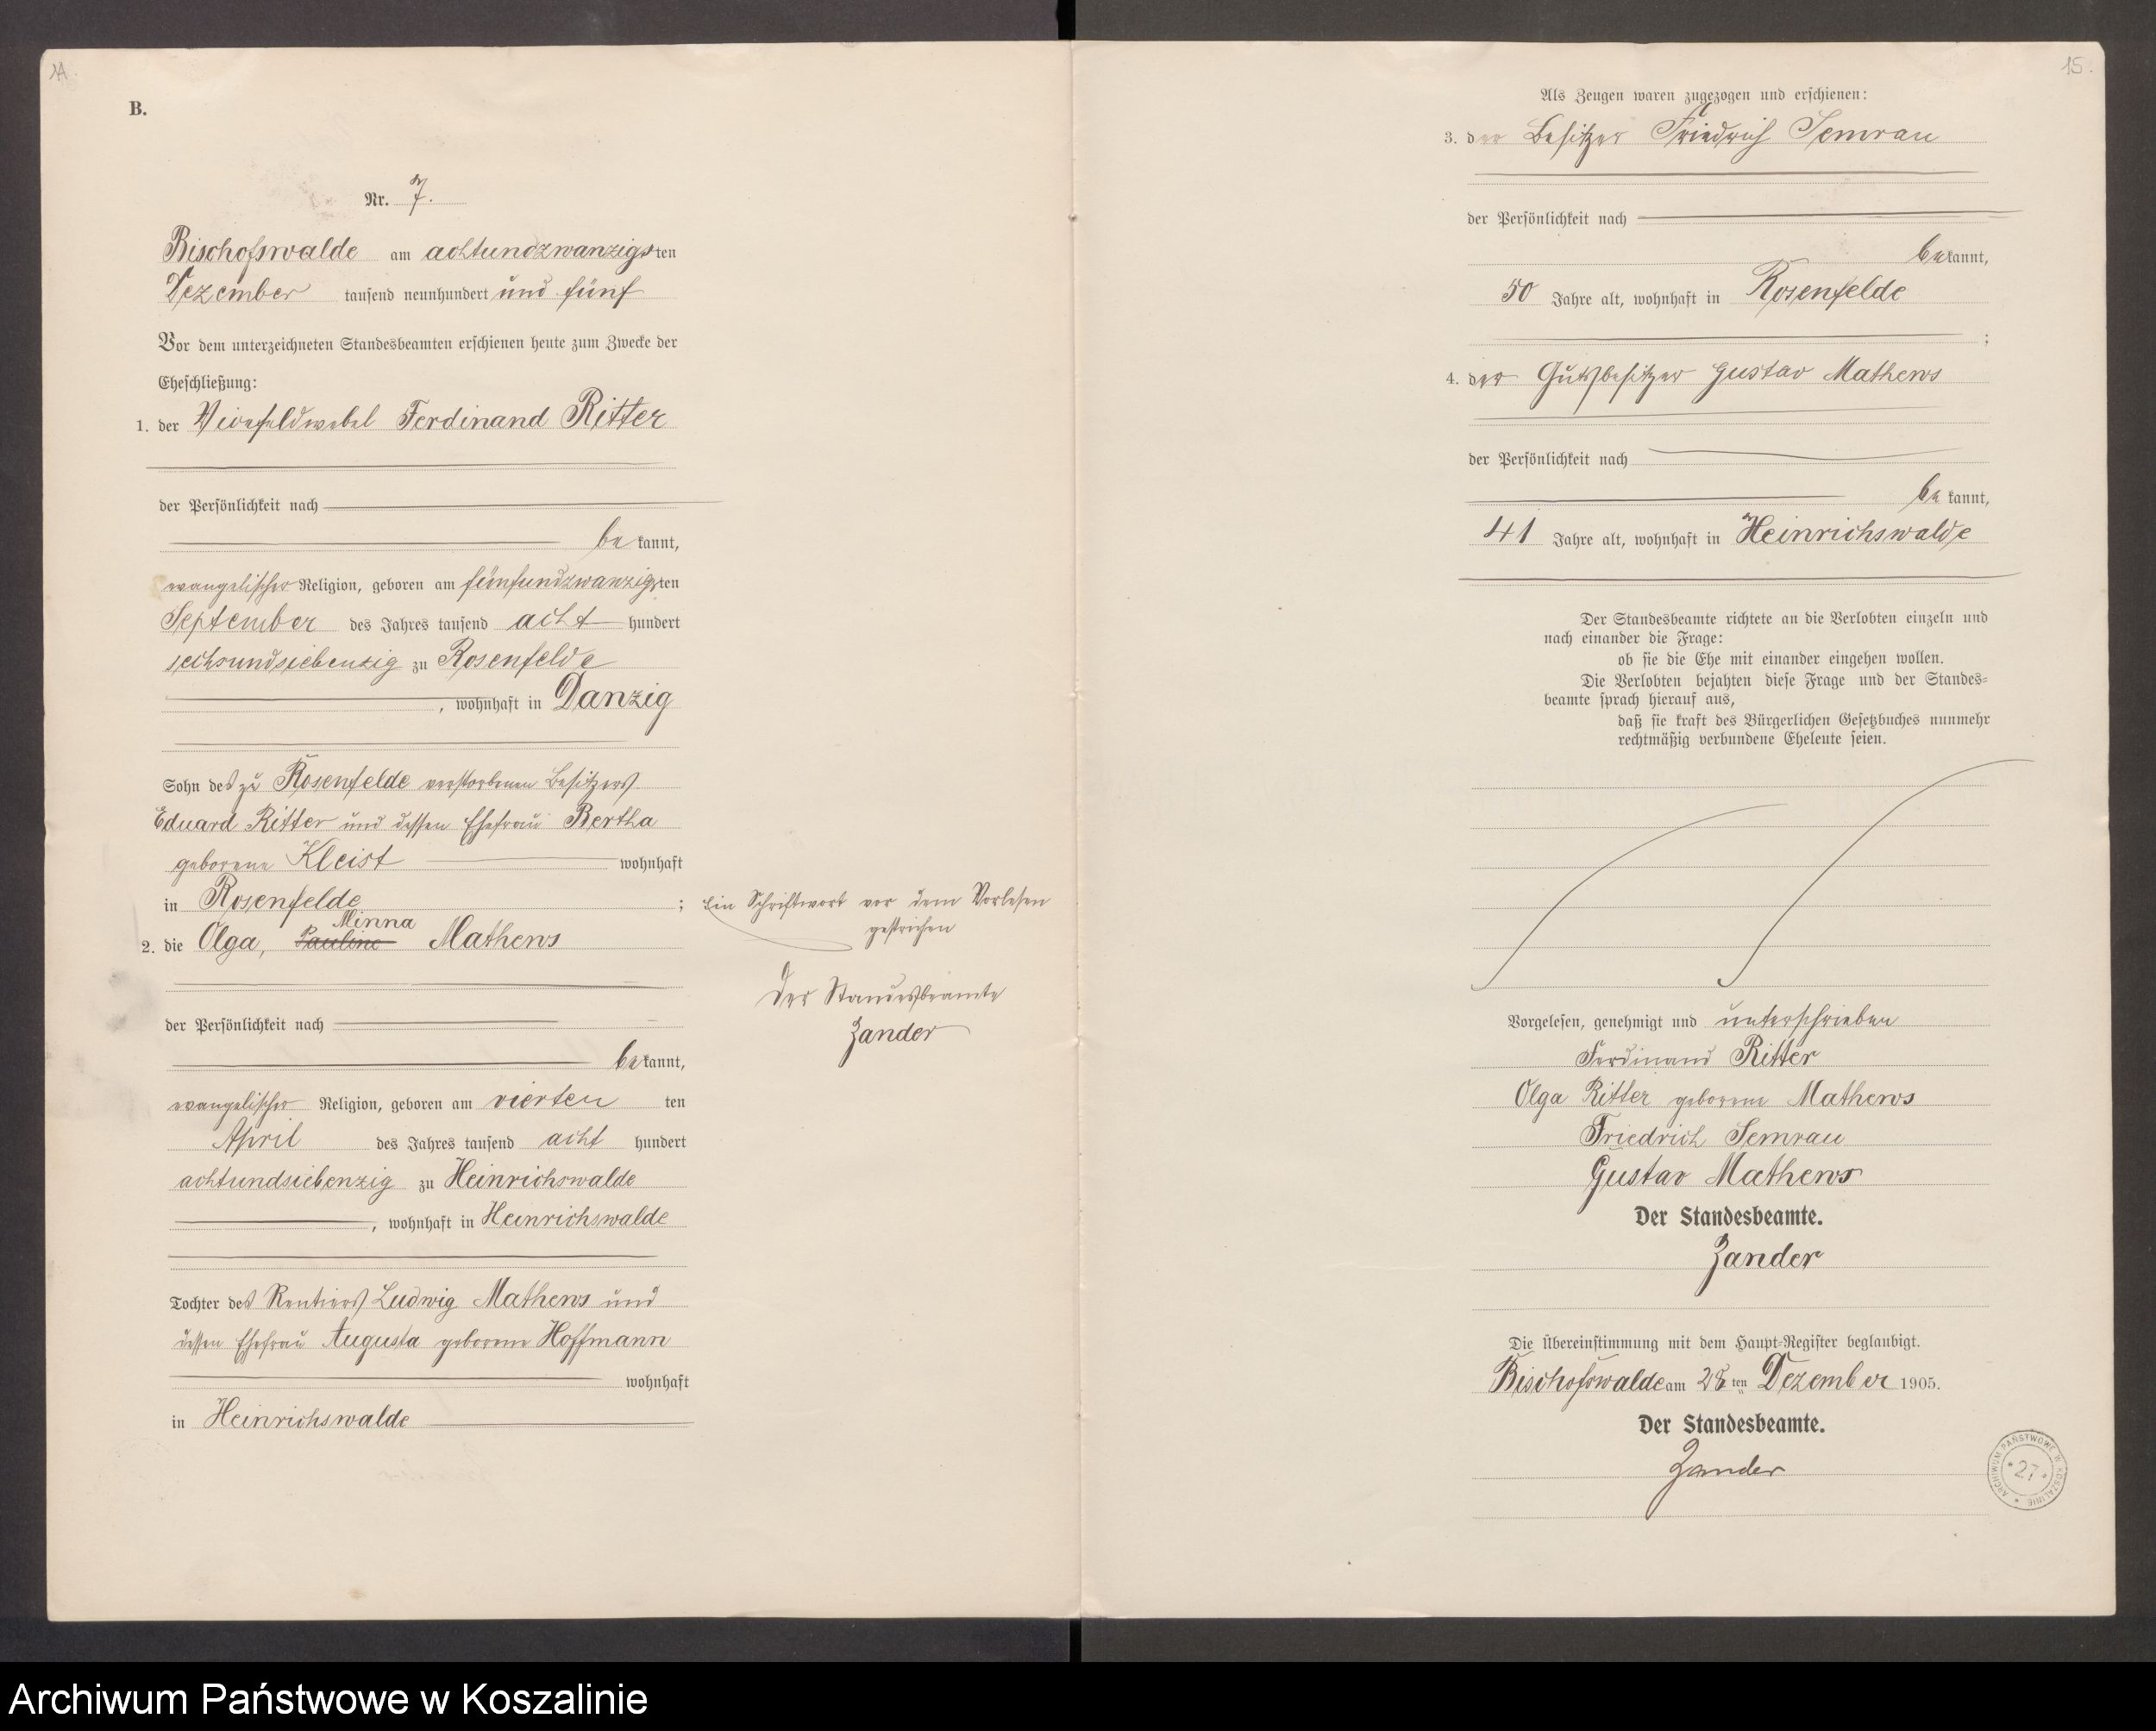 14.
B.
Nr. 7.
Bischofswalde am achtundzwanzigsten
Dezember tausend neunhundert und fünf
Vor dem unterzeichneten Standesbeamten erschienen heute zum Zwecke der
Eheschließung:
1. der Vicefeldwebel Ferdinand Ritter
der Persönlichkeit nach
be kannt,
evangelischer Religion, geboren am fünfundzwanzigsten
September des Jahres tausend acht hundert
sechsundsiebenzig zu Rosenfelde
, wohnhaft in Danzig
Sohn des zu Rosenfelde verstorbenen Besitzers
Eduard Ritter und dessen Ehefrau Bertha
geborene Kleist wohnhaft
in Rosenfelde ;
Minna
2. die Olga, Pauline Mathews
der Persönlichkeit nach
be kannt,
evangelischer Religion, geboren am vierten ten
April des Jahres tausend acht hundert
achtundsiebenzig zu Heinrichswalde
, wohnhaft in Heinrichswalde
Tochter des Rentiers Ludwig Mathews und
dessen Ehefrau Augusta geborene Hoffmann
wohnhaft
in Heinrichswalde
Ein Schriftwort vor dem Vorlesen
gestrichen
Der Standesbeamte
Zander
15.
Als Zeugen waren zugezogen und erschienen:
3. der Besitzer Friedrich Semrau
der Persönlichkeit nach
bekannt,
50 Jahre alt, wohnhaft in Rosenfelde
;
4. der Gutsbesitzer Gustav Mathews
der Persönlichkeit nach
be kannt,
41 Jahre alt, wohnhaft in Heinrichswalde
Der Standesbeamte richtete an die Verlobten einzeln und
nach einander die Frage:
ob sie die Ehe mit einander eingehen wollen.
Die Verlobten bejahten diese Frage und der Standes-
beamte sprach hierauf aus,
daß sie kraft des Bürgerlichen Gesetzbuches nunmehr
rechtmäßig verbundene Eheleute seien.
Vorgelesen, genehmigt und unterschrieben
Ferdinand Ritter
Olga Ritter geborene Mathews
Friedrich Semrau
Gustav Mathews
Der Standesbeamte.
Zander
Die Übereinstimmung mit dem Haupt-Register beglaubigt.
Bischofswalde am 28 ten Dezember 1905.
Der Standesbeamte.
Zander
ARCHIWUM PAŃSTWOWE W KOSZALINIE
* 27 *
Archiwum Państwowe w Koszalinie